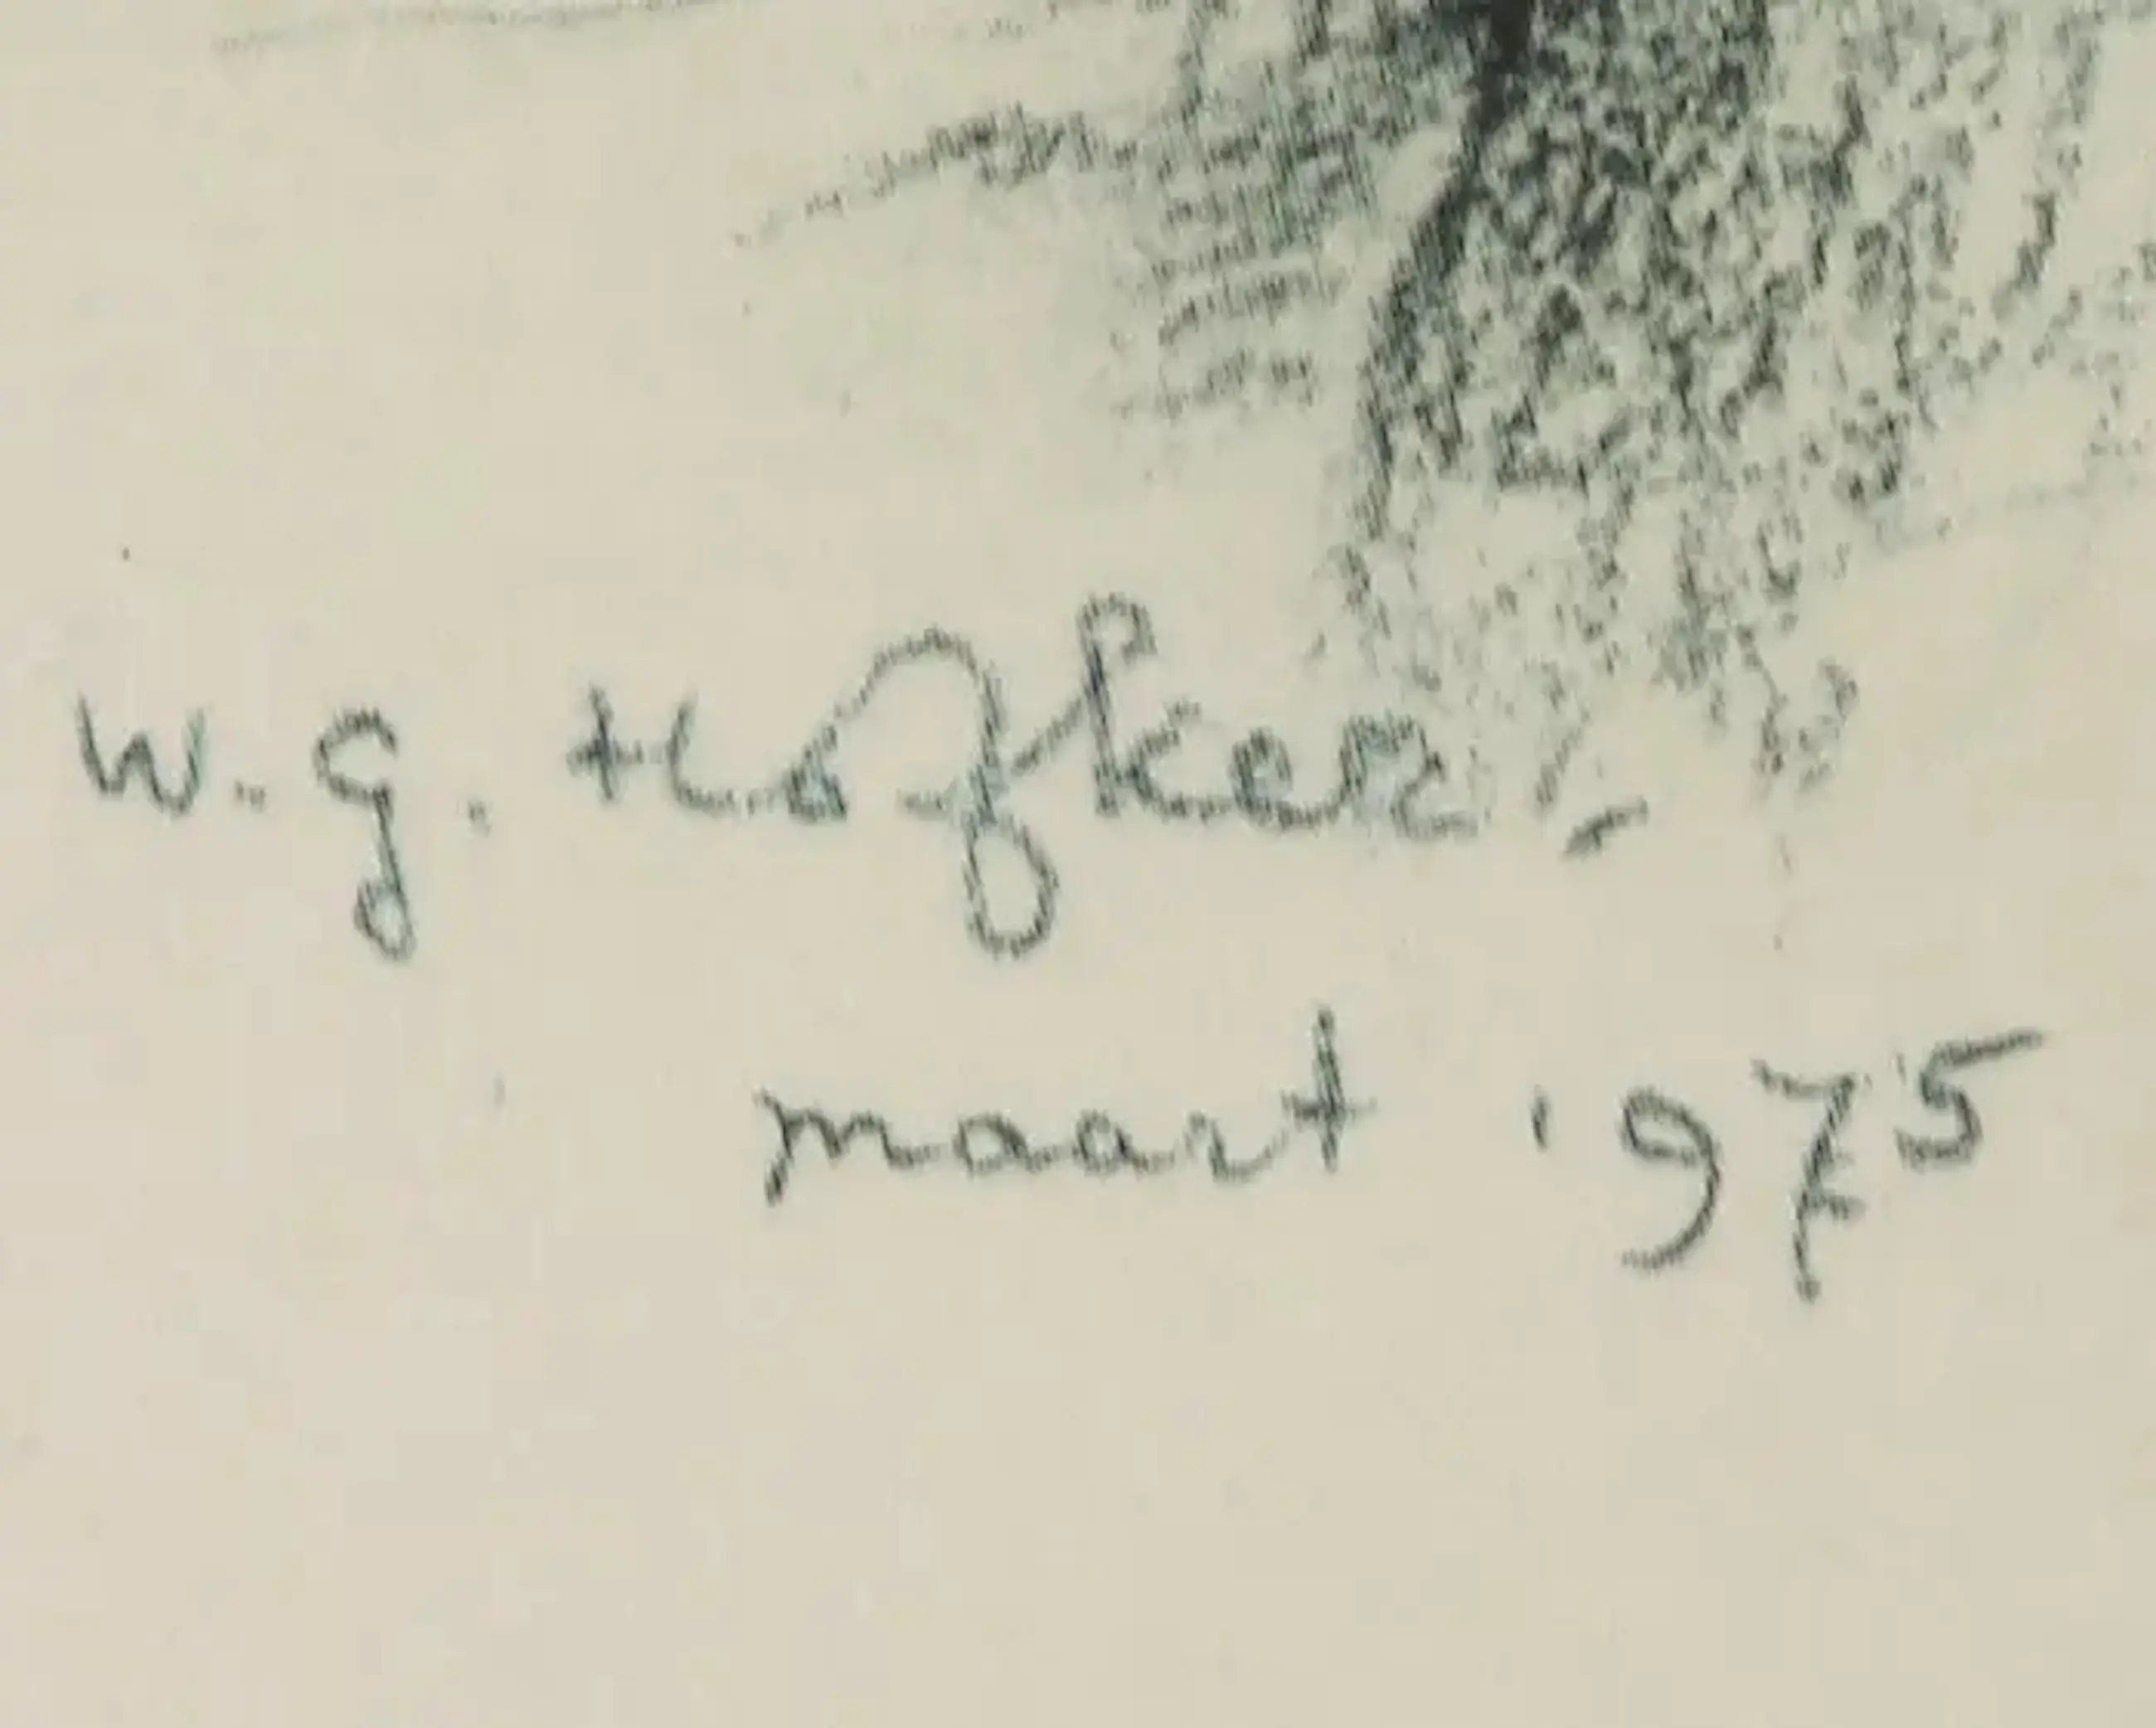 W. G. Hofker.-
maart 1975